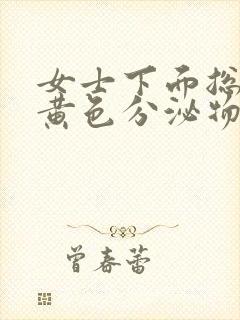 女士下面总
黄色分泌物
曾春蕾